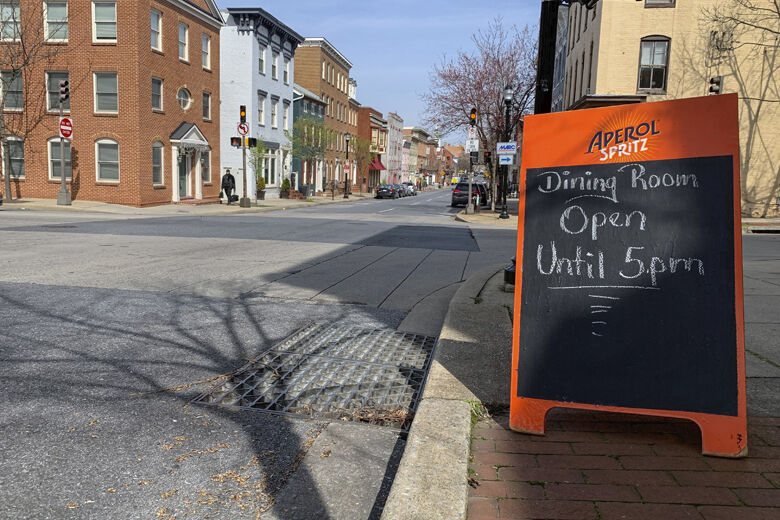 APEROL
SPRITZ
Dining Room
Open
Until 5pm
MARC